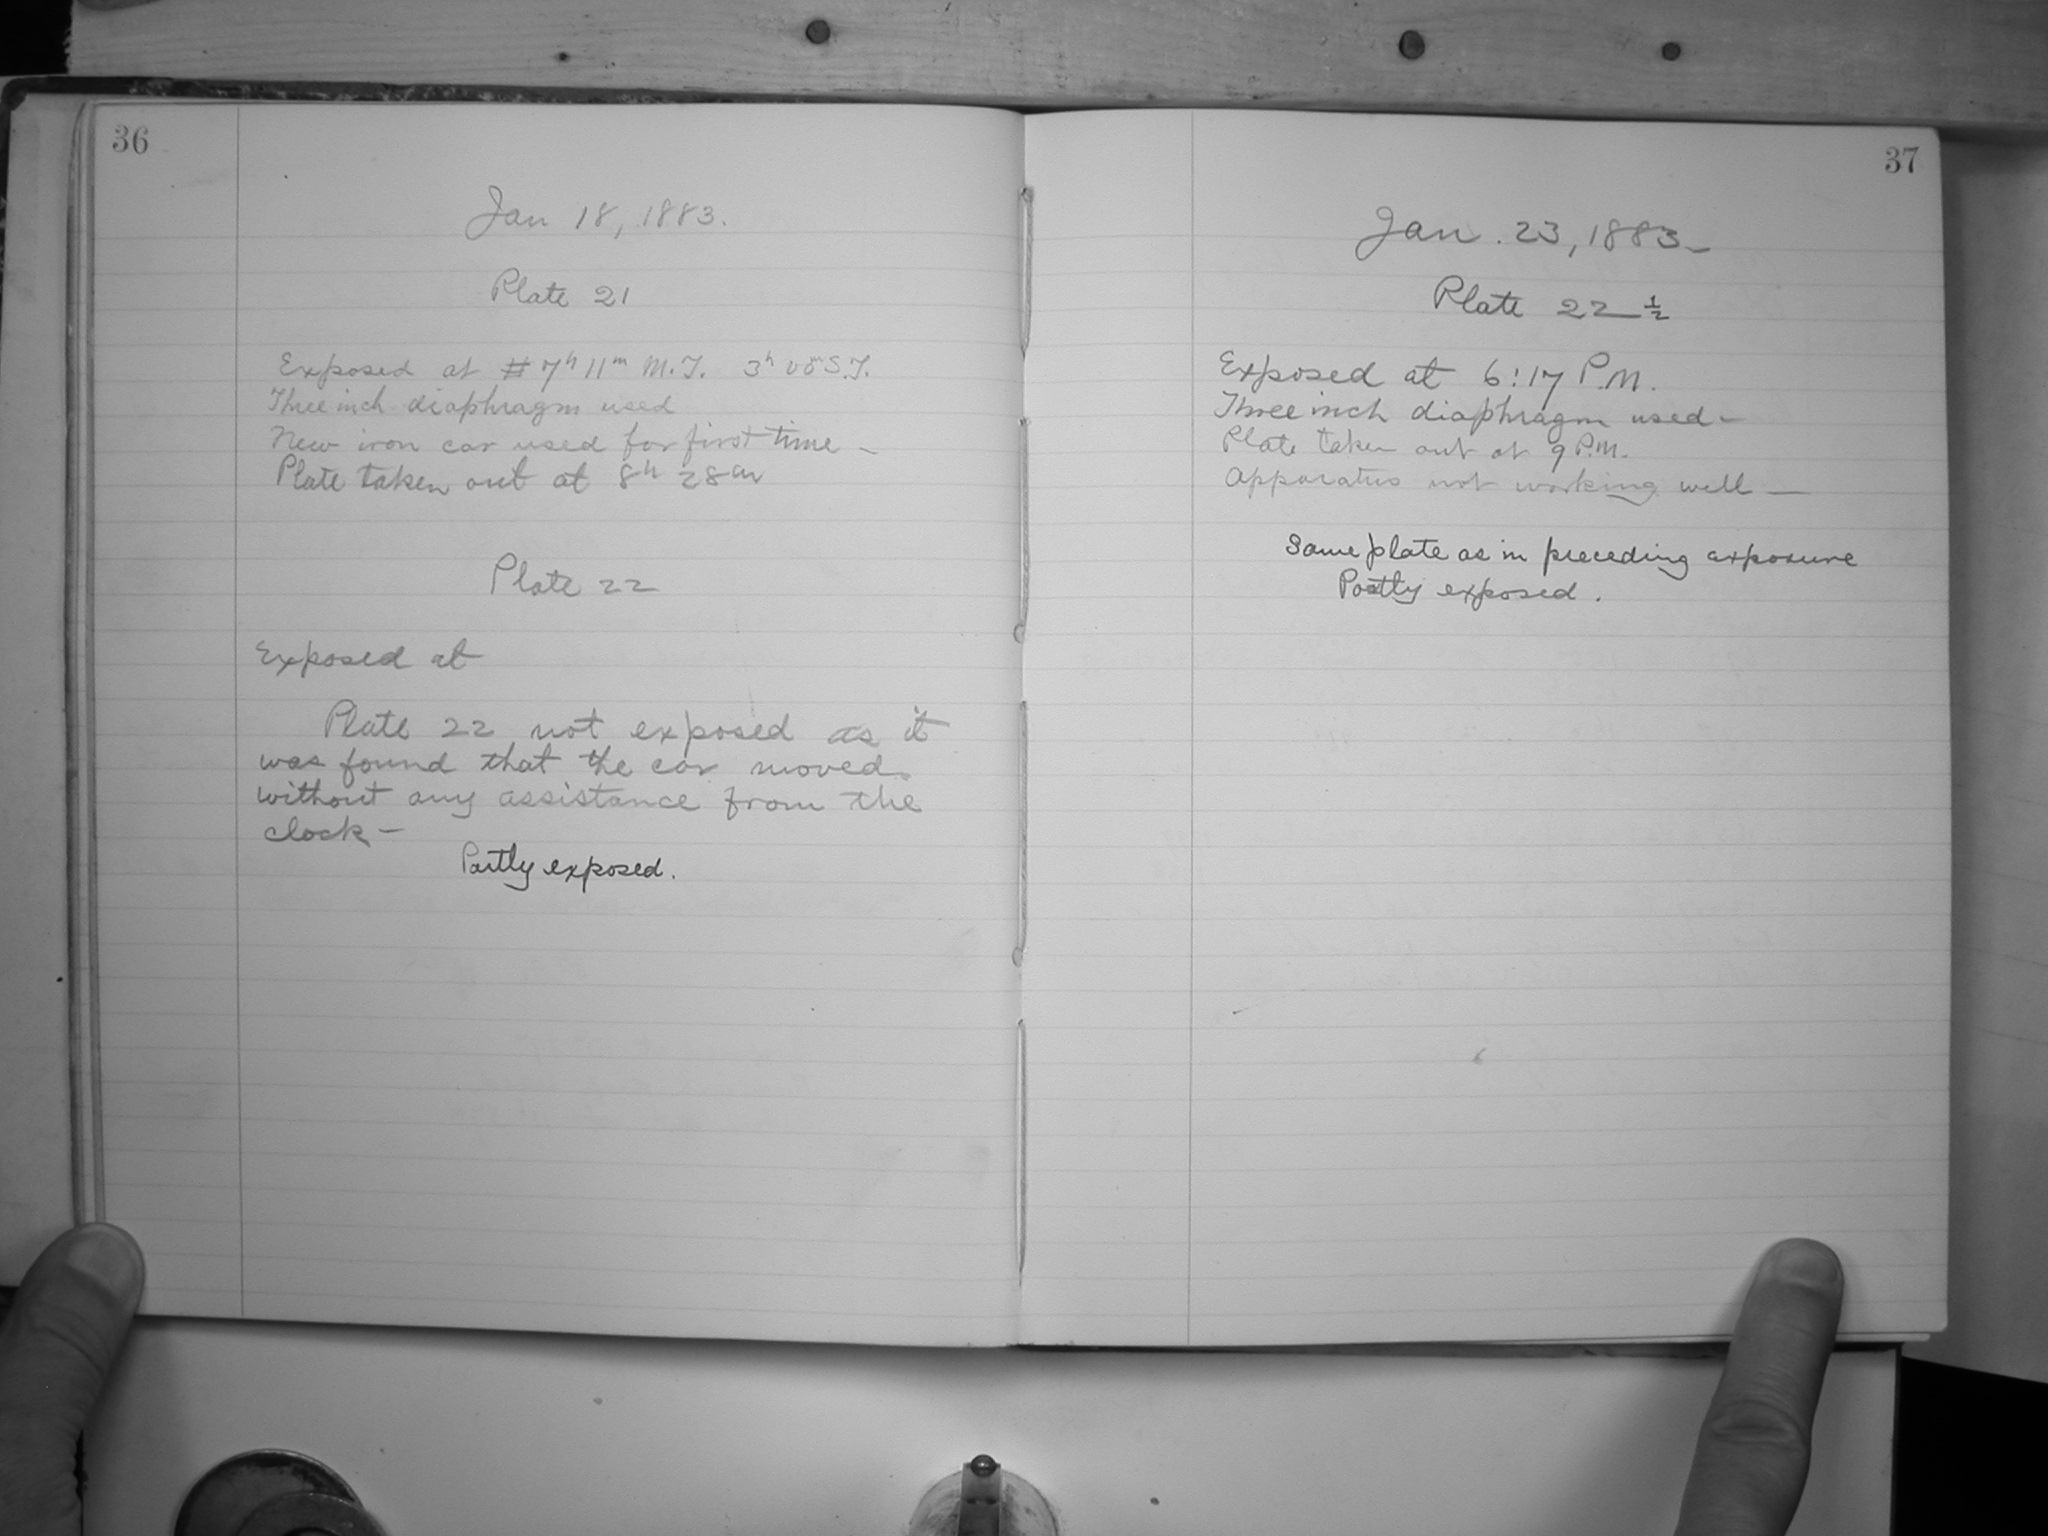 36
Jan 18, 1883.
Plate 21
Exposed at # 7h 11m M.T. 3h S.T.
Three inch diaphragm used
New iron car used for first time –
Plate taken out at 8h 28m
Plate 22
Exposed at
Plate 22 not exposed as it
was found that the car moved
without any assistance from the
clock –
Partly exposed.
37
Jan. 23, 1883 –
Plate 22 ½
Exposed at 6:17 P.M.
Three inch diaphragm used –
Plate taken out at 9 P.M.
Apparatus not working well —
Same plate as in preceding exposure
Partly exposed.